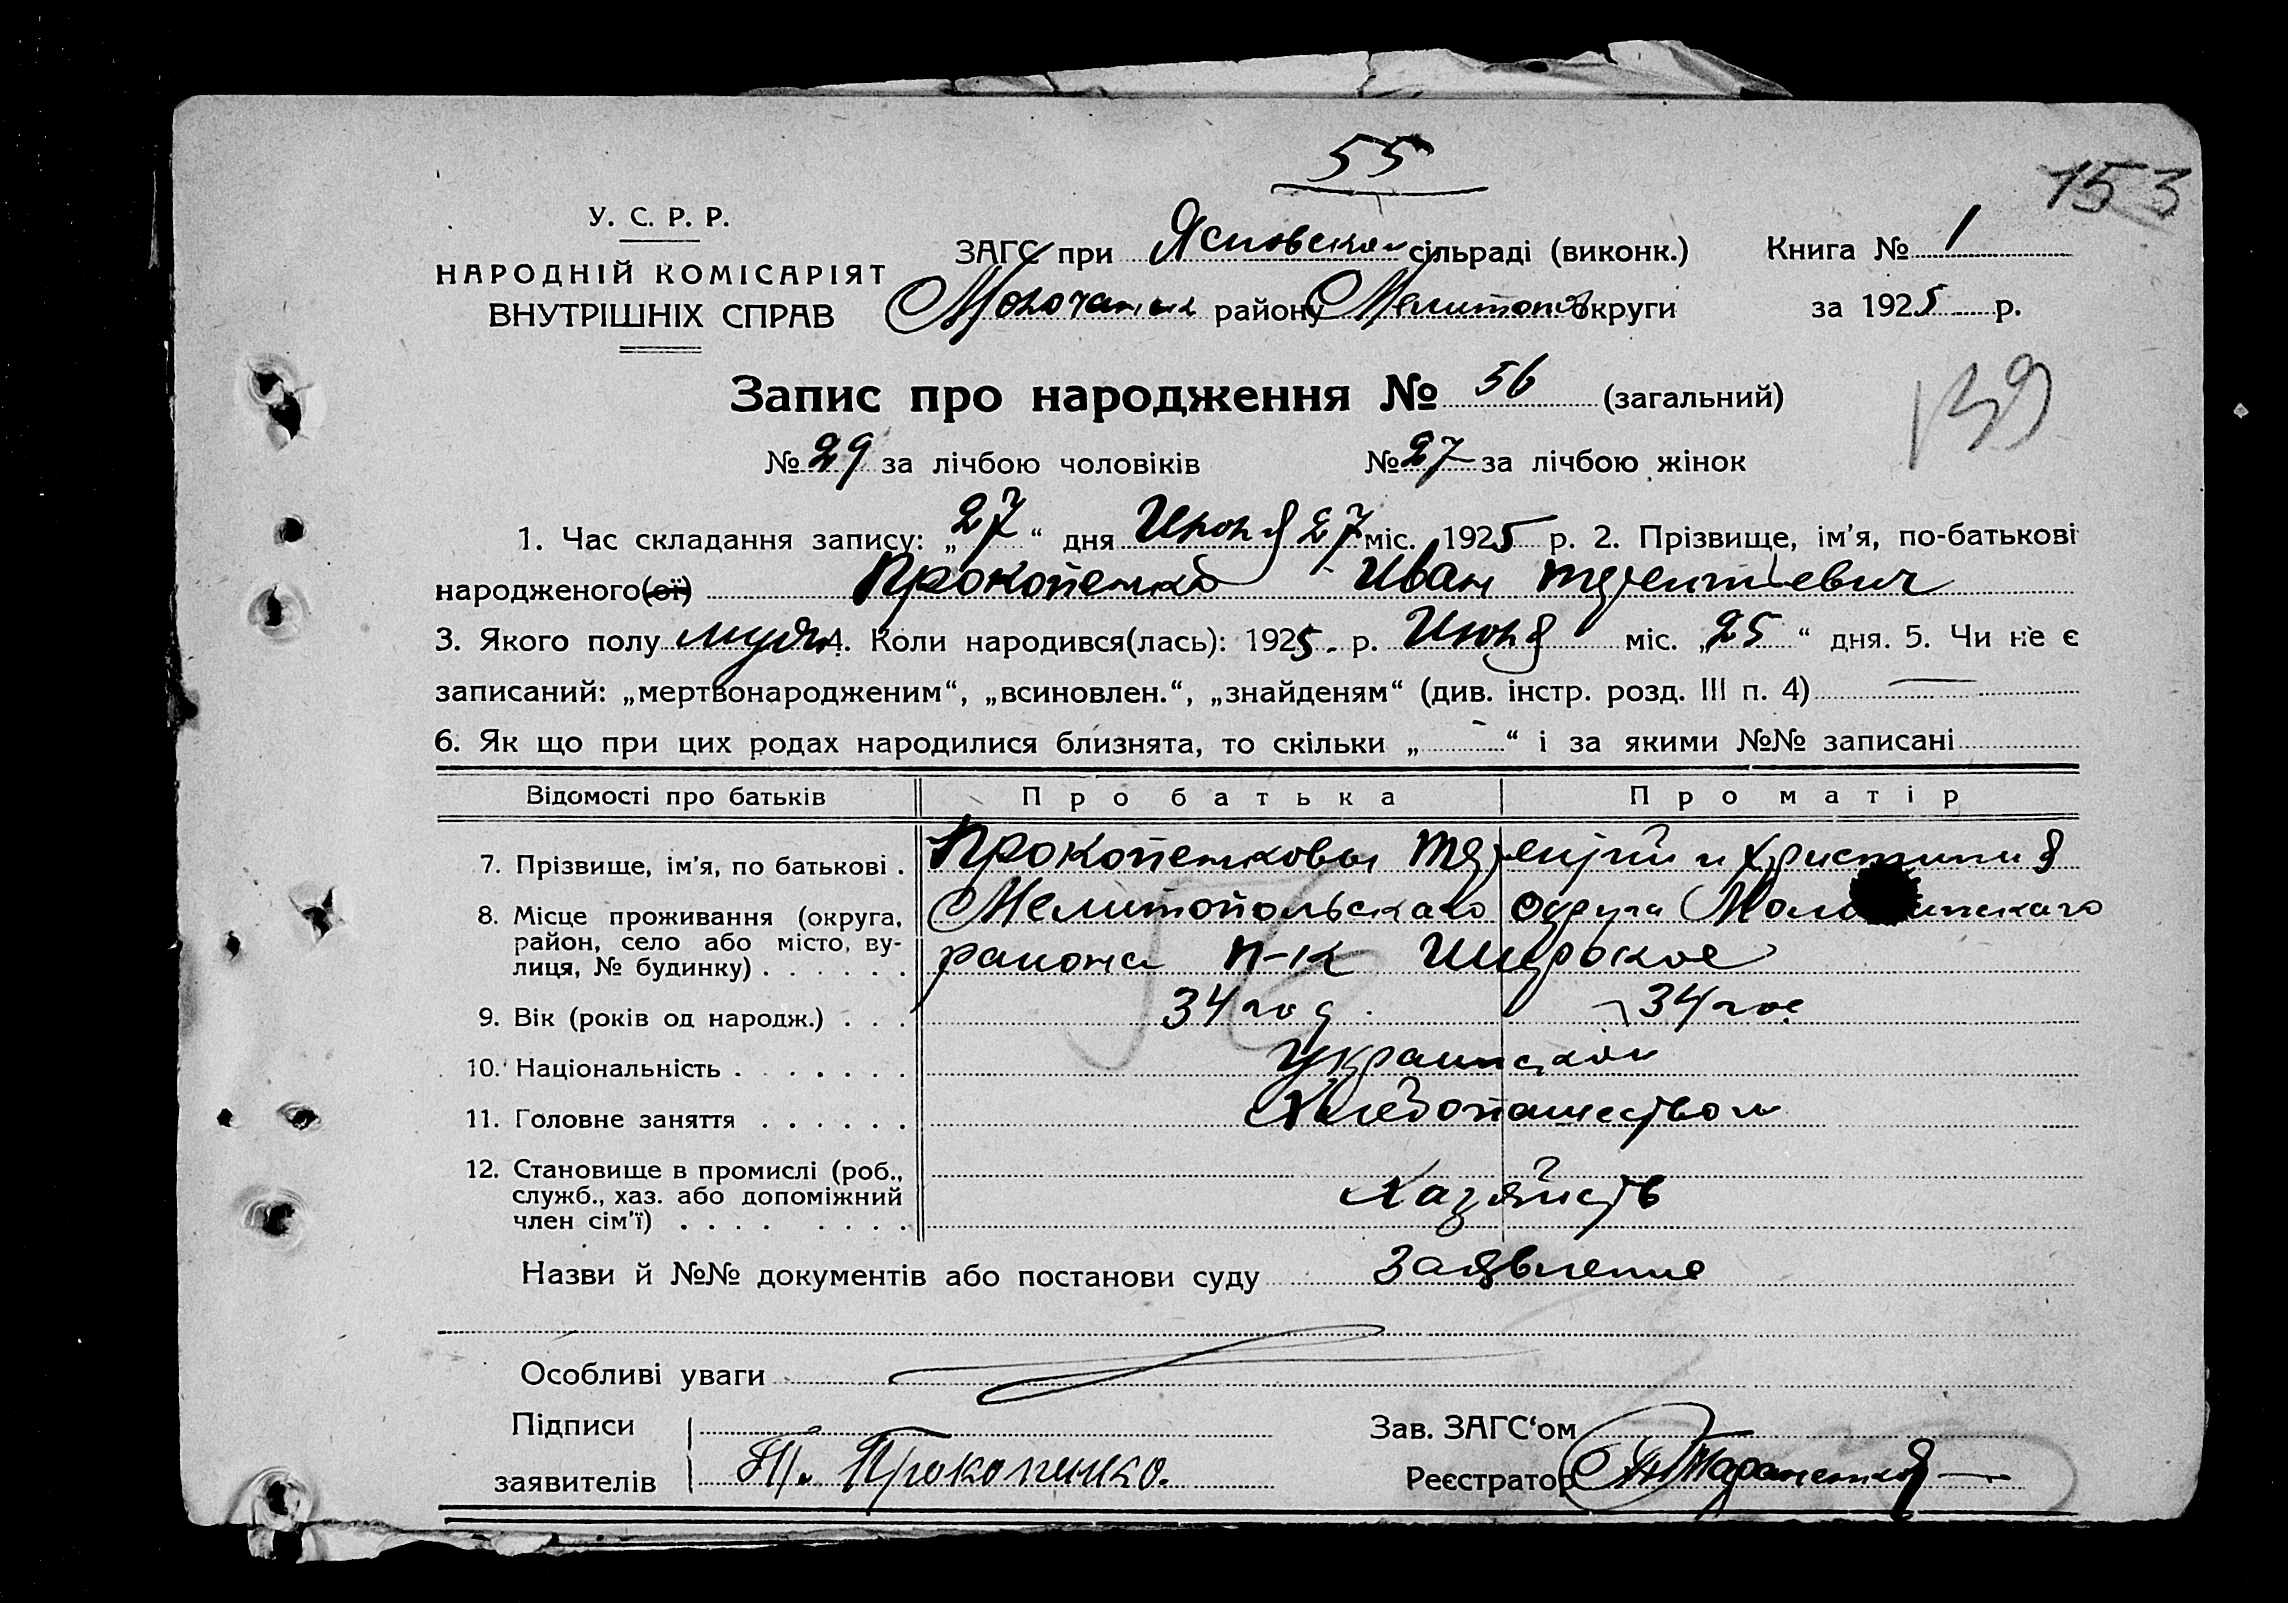 55
153
У. С. Р. Р.
НАРОДНІЙ КОМІСАРІЯТ
ВНУТРІШНІХ СПРАВ
ЗАГС при сільраді (виконк.) Книга № 1
району Мелитоп округи за 1925 р.
Запис про народження № 56 (загальний)
139
№ 29 за лічбою чоловіків № 27 за лічбою жінок
1. Час складання запису: „27“ дня Июня 27 міс. 1925 р. 2. Прізвище, ім'я, по-батькові
народженого(ої) Прокопенко Иван Терентиевич
3. Якого полу 4. Коли народився(лась): 1925 р. Июня міс. „25“ дня. 5. Чи не є
записаний: „мертвонародженим“, „всиновлен.“, „знайденям“ (див. інстр. розд. III п. 4) —
6. Як що при цих родах народилися близнята, то скільки „-“ і за якими №№ записані
Відомості про батьків Про батька Про матір
7. Прізвище, ім'я, по батькові . Прокопенковы Терентий и Христиния
8. Місце проживання (округа, Мелитопольскаго округа
район, село або місто, ву-
лиця, № будинку) . . . . . . района п-к Широкое
9. Вік (років од народж.) . . . 34 год 34 год
10. Національність . . . . . . .
11. Головне заняття . . . . . . Хлебопашеством
12. Становище в промислі (роб.,
служб., хаз. або допоміжний
член сім'ї) . . . . . . . .
Назви й №№ документів або постанови суду Заявление
Особливі уваги
Підписи Зав. ЗАГС‘ом
заявителів Т. Прокопенко. Реєстратор